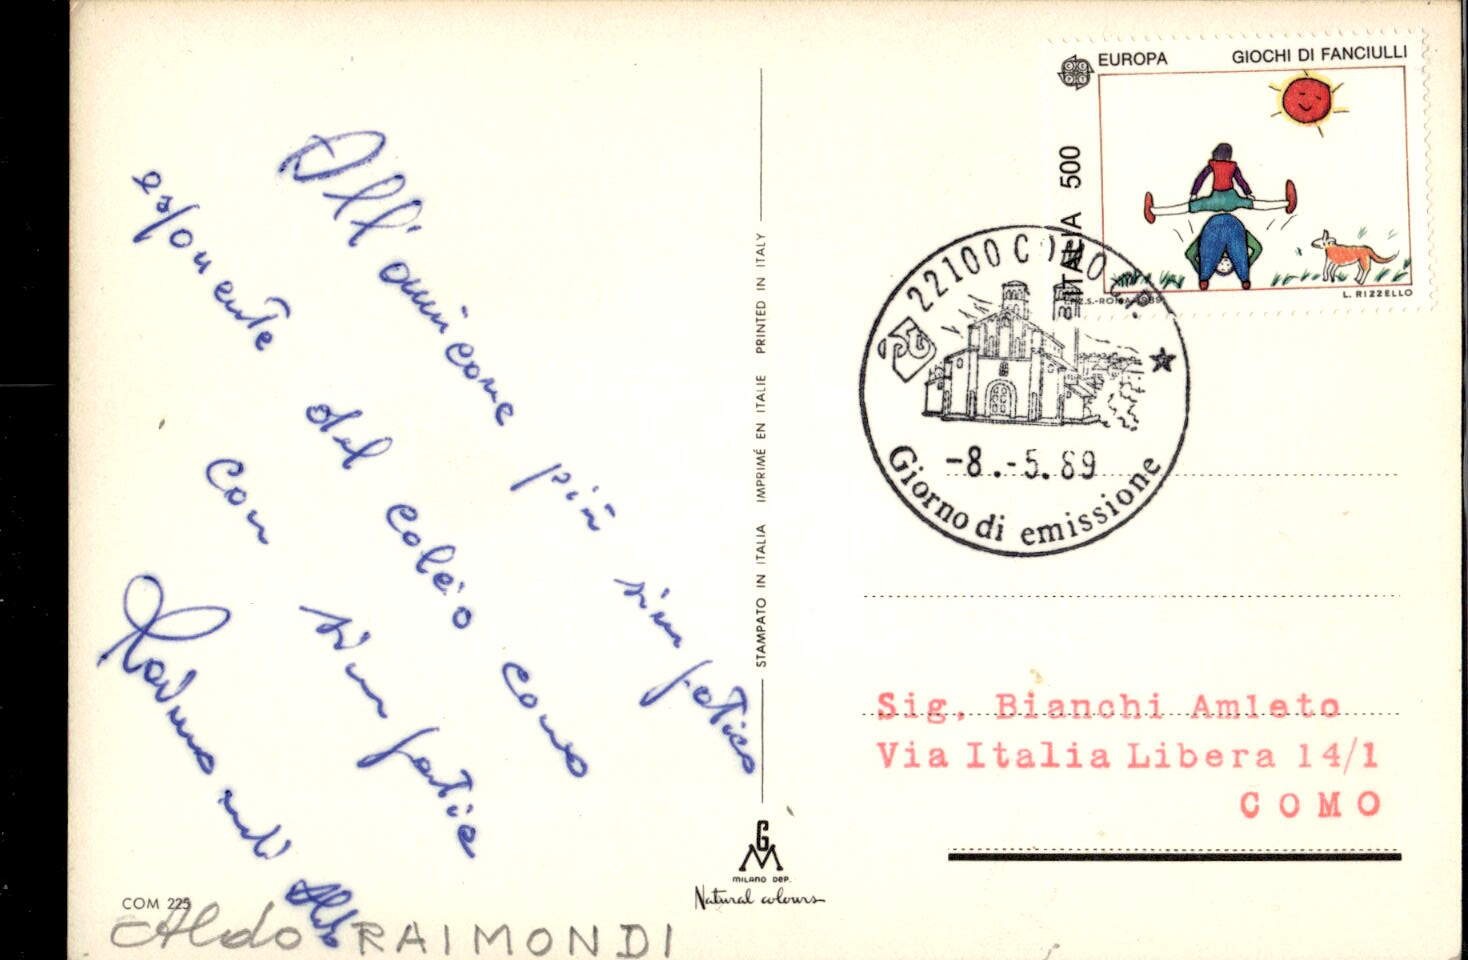 All'amicone più simpatico
esponente del calcio comasco
con simpatia
Raimondi Aldo
COM 225
Aldo RAIMONDI
STAMPATO IN ITALIA IMPRIMÉ EN ITALIE PRINTED IN ITALY
GM
MILANO DEP.
Natural colours
EUROPA GIOCHI DI FANCIULLI
ITALIA 500
I.P.Z.S.-ROMA-1989 L. RIZZELLO
22100 COMO
-8.-5.89
Giorno di emissione
Sig. Bianchi Amleto
Via Italia Libera 14/1
COMO